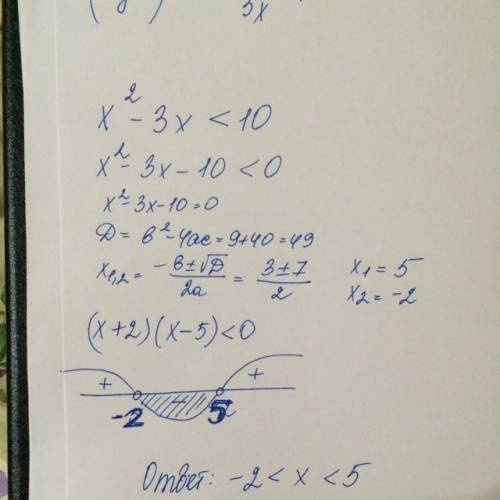 3x
x² - 3x < 10
x² - 3x - 10 < 0
x² - 3x - 10 = 0
D = b² - 4ac = 9 + 40 = 49
x₁,₂ = (-b ± √D)/2a = (3 ± 7)/2 x₁ = 5
x₂ = -2
(x+2)(x-5) < 0
+ +
-2 5
Ответ: -2 < x < 5